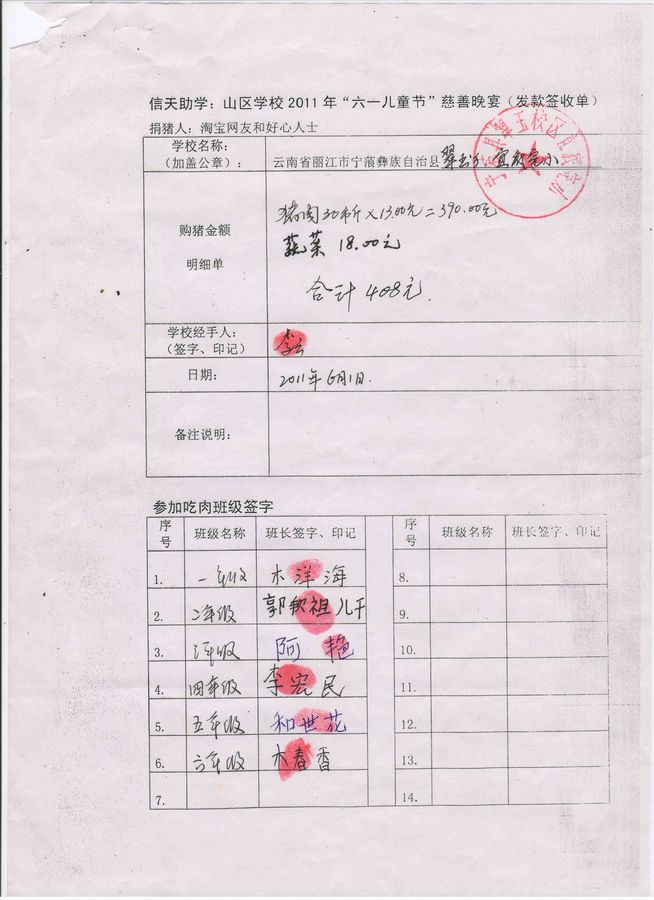 信天助学：山区学校2011年“六一儿童节”慈善晚宴（发款签收单）
捐猪人：淘宝网友和好心人士
学校名称：
（加盖公章）：
云南省丽江市宁蒗彝族自治县翠玉乡
完小
购猪金额
明细单
猪肉30市斤×13.00元=390.00元
蔬菜 18.00元
合计408元.
学校经手人：
（签字、印记）
李云
日期：
2011年6月1日.
备注说明：
参加吃肉班级签字
序号 班级名称 班长签字、印记 序号 班级名称 班长签字、印记
1. 一年级 木洋海 8.
2. 二年级 郭秋祖儿干 9.
3. 三年级 阿艳 10.
4. 四年级 李宏民 11.
5. 五年级 和世花 12.
6. 六年级 木春香 13.
7. 14.